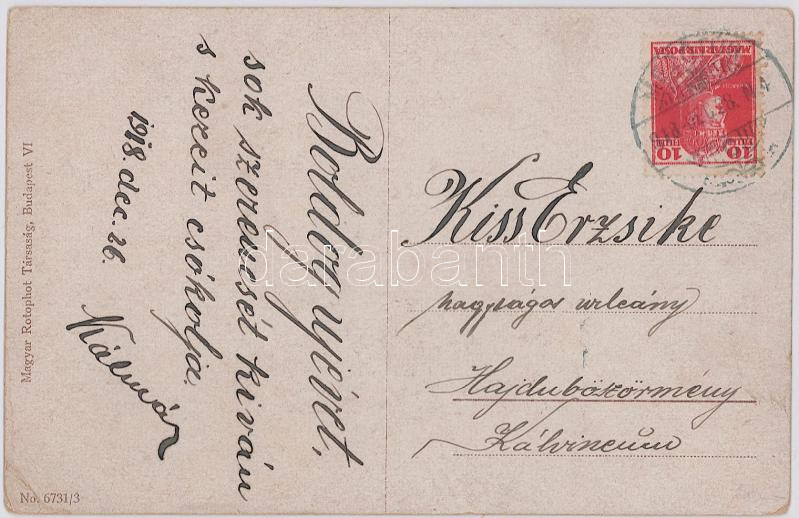 Boldog ujévet,
sok szerencsét kiván
s kezeit csókolja
1918. dec. 26.
Kálmán
Kiss Erzsike
nagyságos urleány
Hajduböszörmény
Kálvineum
MAGYAR KIR. POSTA
10 FILLÉR 10
Magyar Rotophot Társaság, Budapest VI
No. 6731/3
darabanth